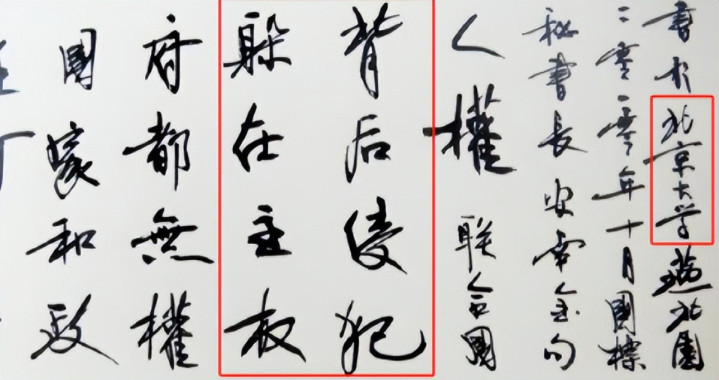 國家和政
府都無權
躲在主权
背后侵犯
人權 联合國
秘書長安南金句
二零一零年十月國標
書於北京大学燕北園